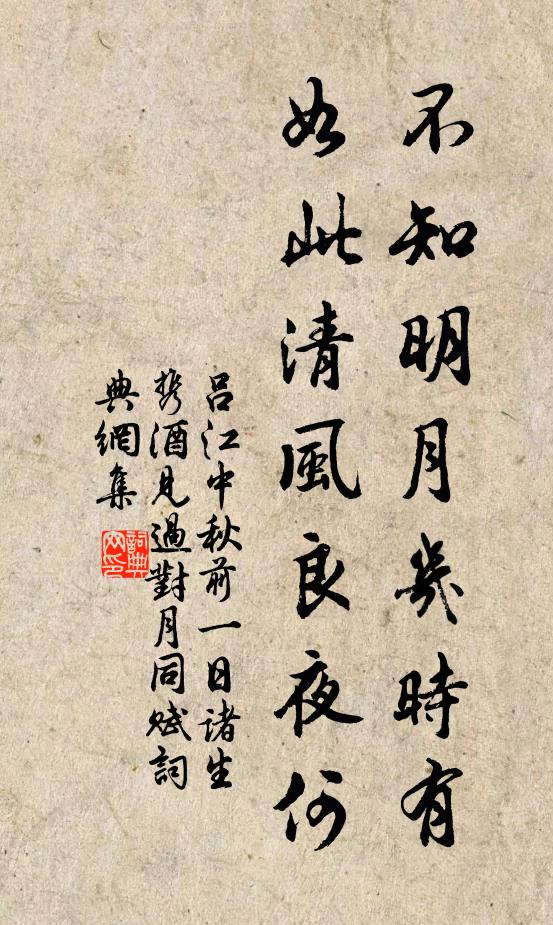 不知明月幾時有
如此清風良夜何
吕江中秋前一日诸生
携酒見過對月同賦詞
典網集
詞典网印